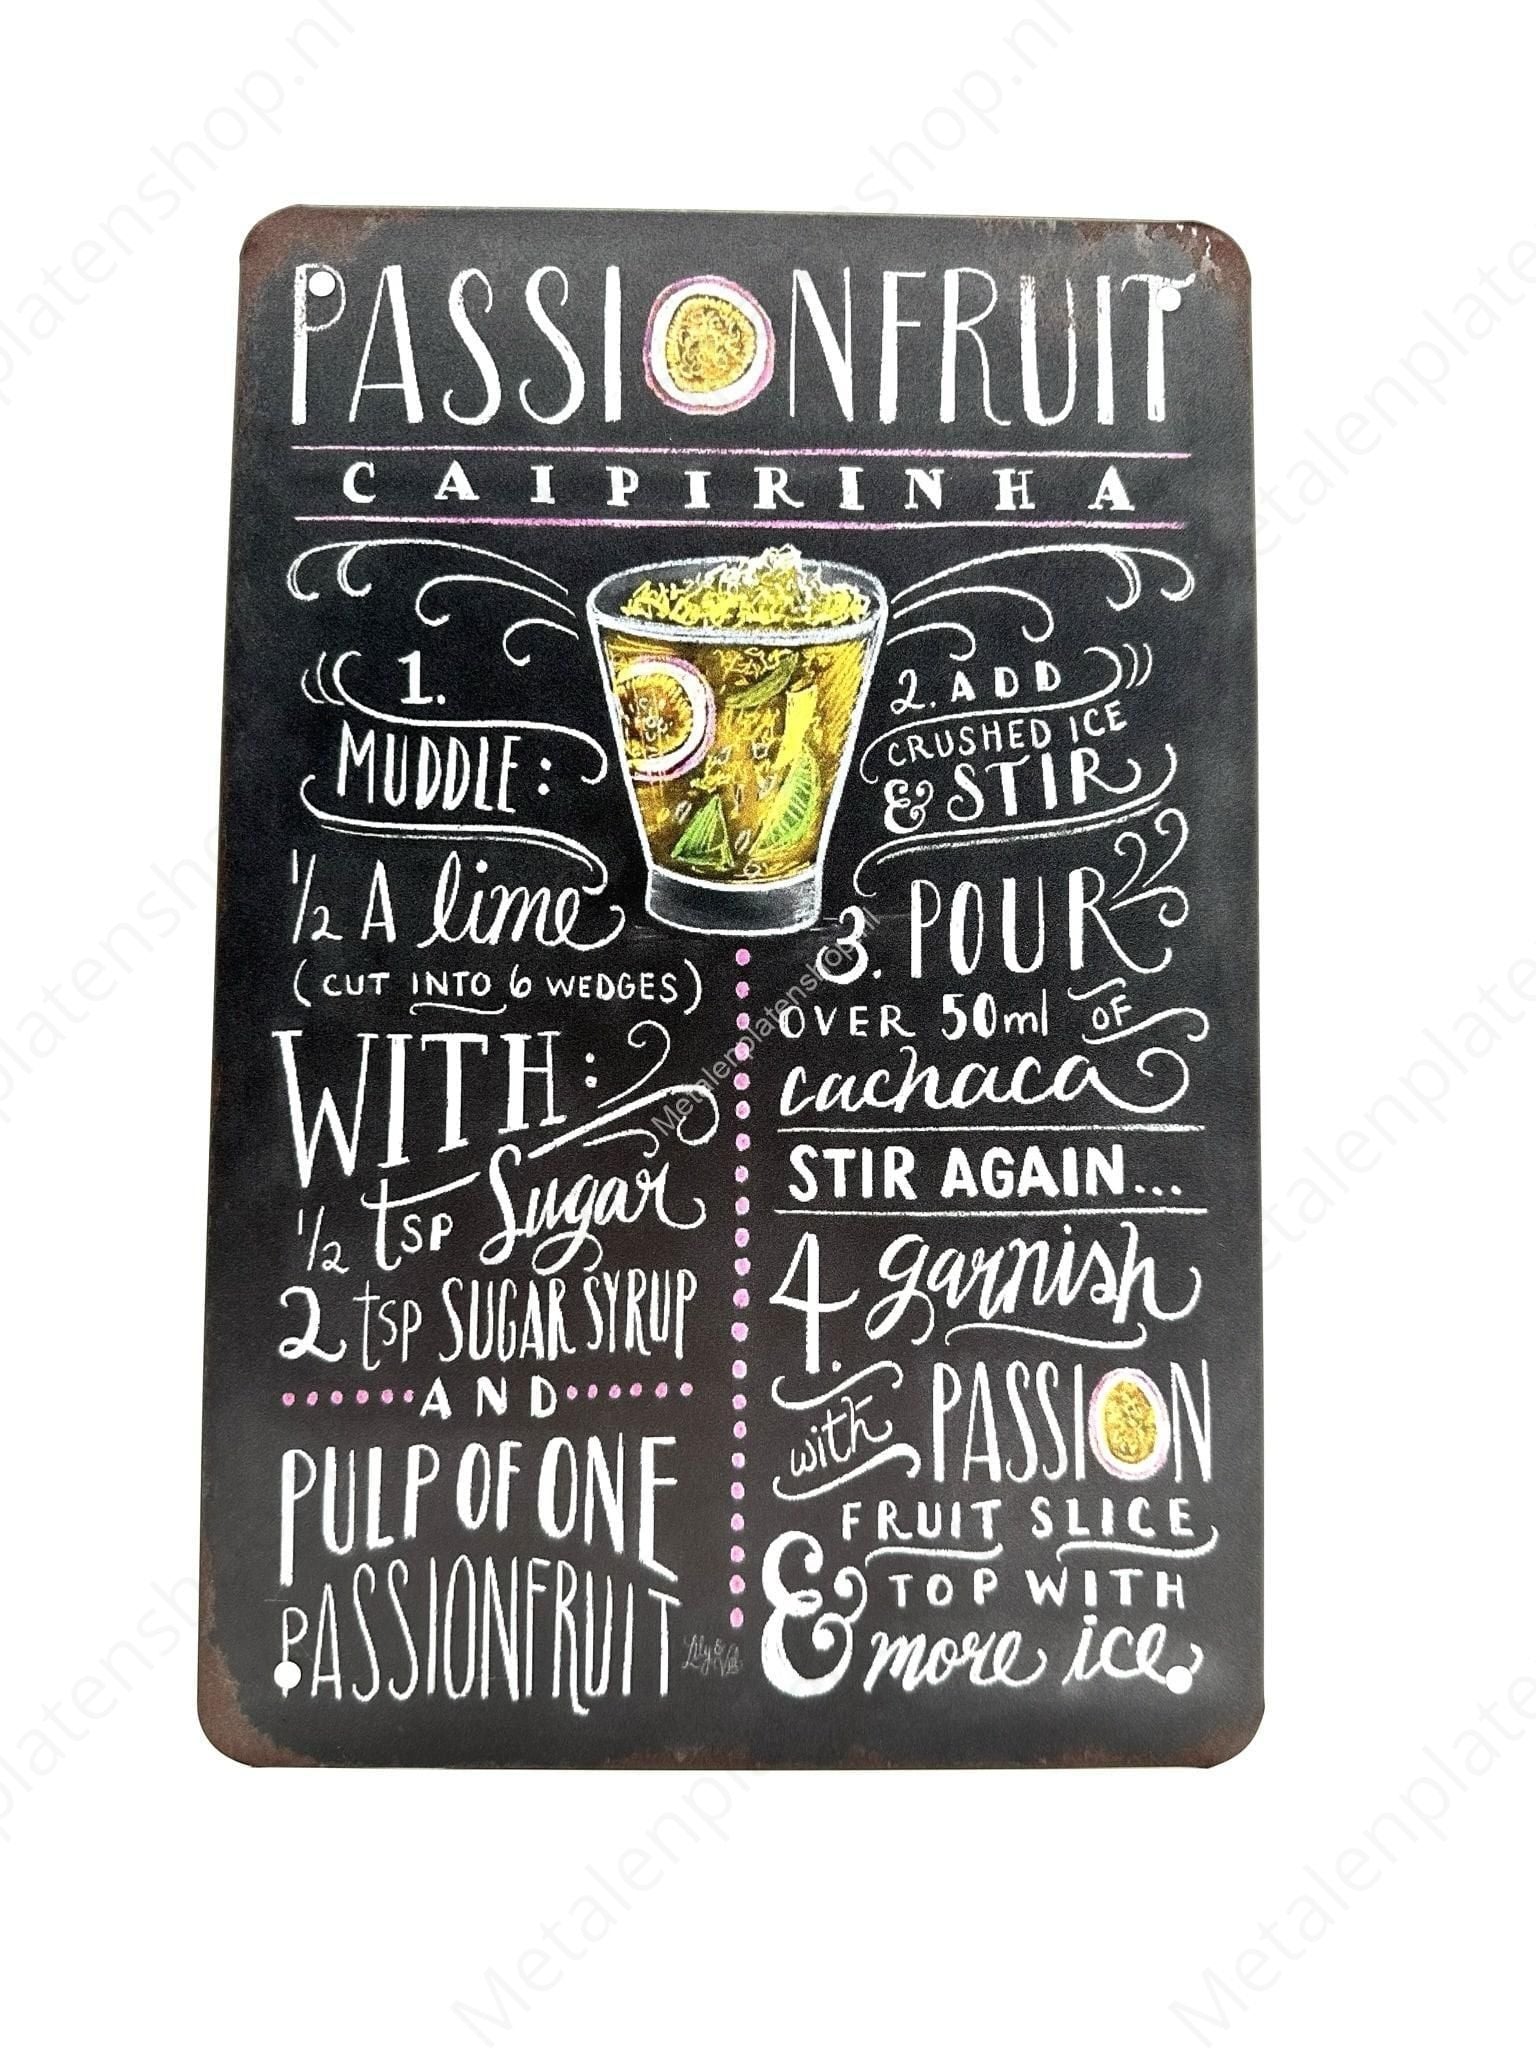 PASSIONFRUIT
CAIPIRINHA
1.
MUDDLE:
1/2 A lime
(CUT INTO 6 WEDGES)
WITH:
1/2 tsp Sugar
2 tsp SUGAR SYRUP
AND
PULP OF ONE
PASSIONFRUIT
Lily & Val
2. ADD
CRUSHED ICE
& STIR
3. POUR
OVER 50ml OF
cachaca
STIR AGAIN...
4. garnish
with PASSION
FRUIT SLICE
& TOP WITH
more ice
Metalenplatenshop.nl
Metalenplatenshop.nl
Metalenplatenshop.nl
Metalenplatenshop.nl
Metalenplatenshop.nl